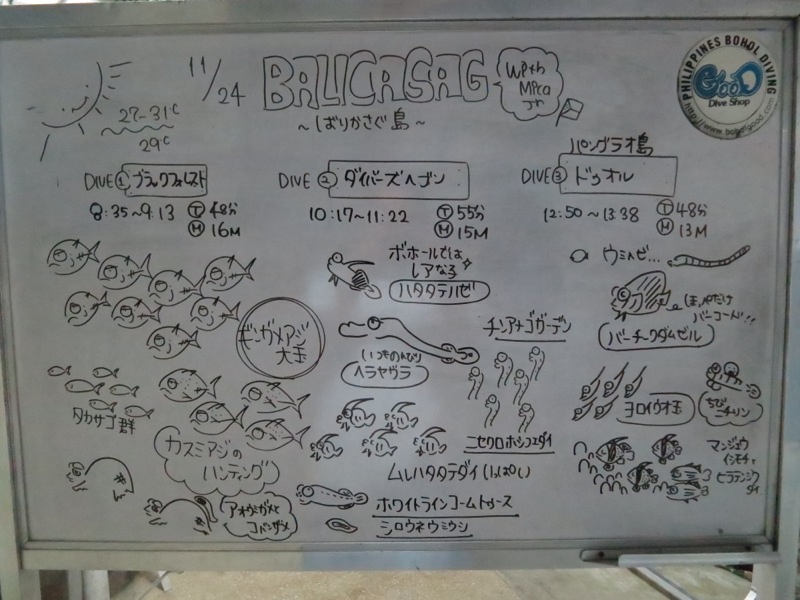 11/24
BALICASAG
27-31℃
29℃
~しばりかさぐ島~
PHILIPPINES BOHOL DIVING
GooD
Dive Shop
DIVE① ブラックフォレスト
8:35~9:13
Ⓣ48分
Ⓜ16M
DIVE② ダイバーズヘブン
10:17~11:22
Ⓣ55分
Ⓜ15M
パングラオ島
DIVE③ ドゥオル
12:50~13:38
Ⓣ48分
Ⓜ13M
ギンガメアジ
大玉
タカサゴ群
カスミアジの
ハンティング
アオウミガメと
コバンザメ
ボホールでは
レアなる
ハタタテハゼ
いつものんびり
ヘラヤガラ
チンアナゴガーデン
ニセクロホシフエダイ
ムレハタタテダイ いっぱい
ホワイトラインコームトゥース
シロウネウミウシ
ウミヘビ...
ほっぺだけ
バーコード!!
バーチークダムゼル
ヨロイウオ玉
ちび
チンリン
マンジュウ
イシモチ
ヒラテンジク
ダイ